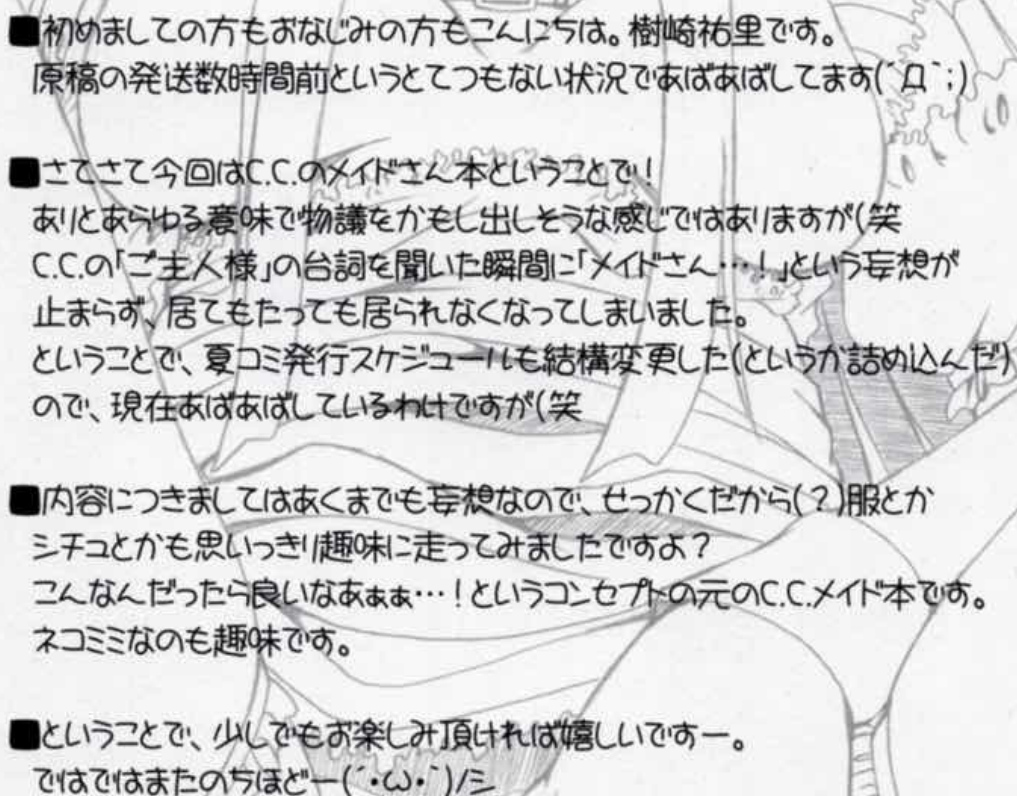 ■初めましての方もおなじみの方もこんにちは。樹崎祐里です。
原稿の発送数時間前というとてつもない状況であばあばしてます(´Д`;)
■さてさて今回はC.C.のメイドさん本ということで!
ありとあらゆる意味で物議をかもし出しそうな感じではありますが(笑
C.C.の「ご主人様」の台詞を聞いた瞬間に「メイドさん…!」という妄想が
止まらず、居てもたっても居られなくなってしまいました。
ということで、夏コミ発行スケジュールも結構変更した(というか詰め込んだ)
ので、現在あばあばしているわけですが(笑
■内容につきましてはあくまでも妄想なので、せっかくだから(?)服とか
シチュとかも思いっきり趣味に走ってみましたですよ?
こんなんだったら良いなあぁぁ…!というコンセプトの元のC.C.メイド本です。
ネコミミなのも趣味です。
■ということで、少しでもお楽しみ頂ければ嬉しいですー。
ではではまたのちほどー(´・ω・`)/ミ